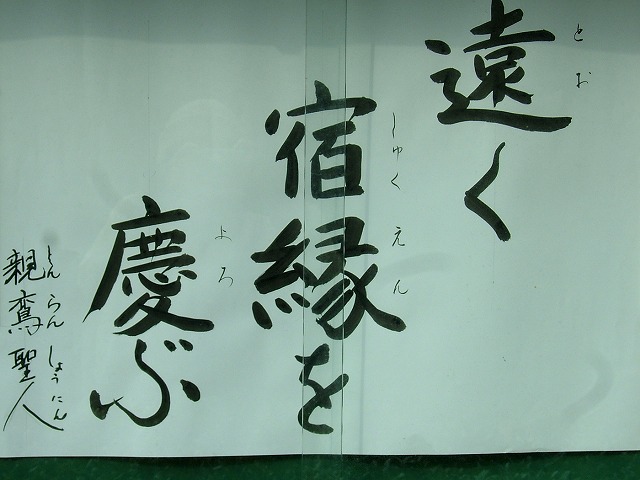 遠く
とお
宿縁を
しゅくえん
慶ぶ
よろ
親鸞聖人
しんらんしょうにん